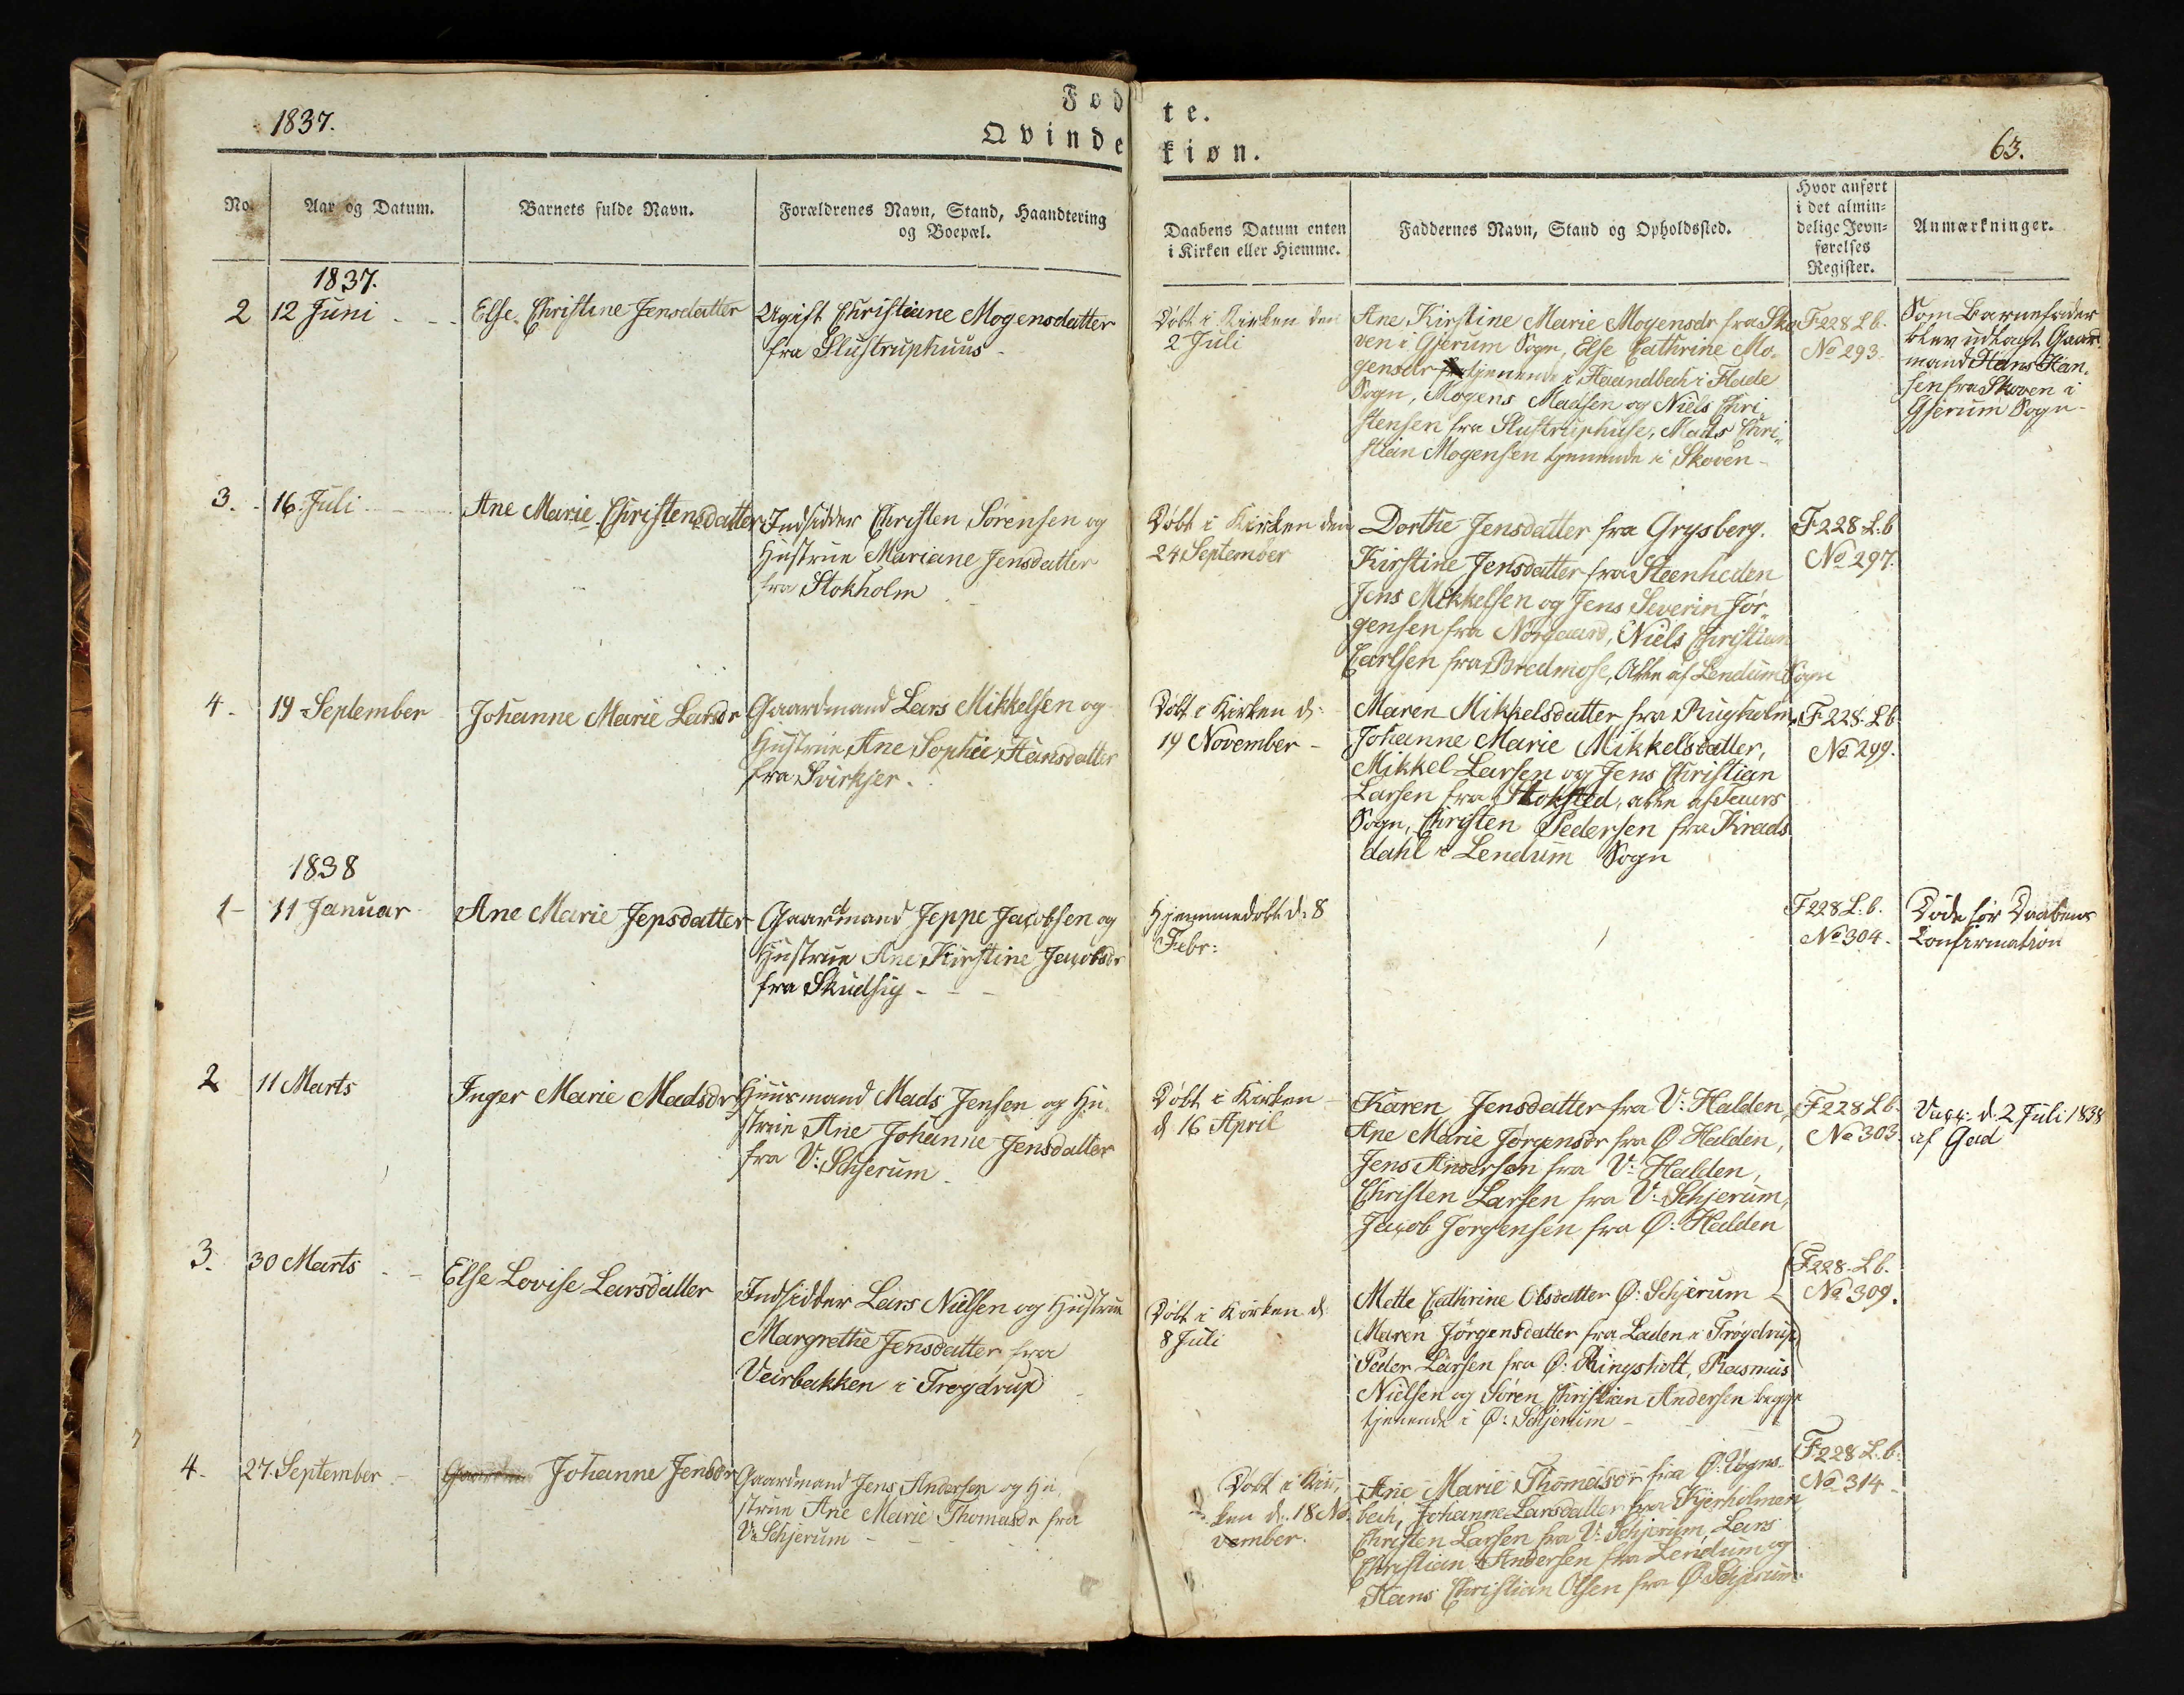 1837.
Fødte.
Qvindekiøn.
63.
No.
Aar og Datum.
Barnets fulde Navn.
Forældrenes Navn, Stand, Haandtering
og Boepæl.
Daabens Datum enten
i Kirken eller Hiemme.
Faddernes Navn, Stand og Opholdssted.
Hvor anført
i det almin-
delige Jevn-
førelses
Register.
Anmærkninger.
1837.
2
12 Juni
Else Christine Jensdatter
Ugift Christiane Mogensdatter
fra Slustruphuus
Døbt i Kirken den
2 Juli
Ane Kirstine Marie Mogensdr fra Sko
ven i Gjerum Sogn, Else Cathrine Mo-
gensdr tjenende i Haandbæk i Flade
Sogn, Mogens Madsen og Niels Chri
stensen fra Slustruphuse, Mads Chri-
stian Mogensen tjenende i Skoven
F 228 L b.
No 293.
Som Barnefader
blev udlagt Gaard
mand Hans Han-
sen fra Skoven i
Gjerum Sogn
3.
16 Juli
Ane Marie Christensdatter
Indsidder Christen Sørensen og
Hustrue Mariane Jensdatter
fra Stokholm
Døbt i Kirken den
24 September
Dorthe Jensdatter fra Grysberg.
Kirstine Jensdatter fra Steenheden
Jens Mikkelsen og Jens Severin Jør-
gensen fra Nørgaard, Niels Christian
Carlsen fra Bredmose, Alle af Lendum Sogn
F 228 L: b
No 297.
4.
19 September
Johanne Marie Larsdr
Gaardmand Lars Mikkelsen og
Hustrue Ane Sophie Hansdatter
fra Svirkjer.
Døbt i Kirken d:
19 November
Maren Mikkelsdatter fra Rugholm,
Johanne Marie Mikkelsdatter,
Mikkel Larsen og Jens Christian
Larsen fra Stoksted, alle af Taars
Sogn, Christen Pedersen fra Krads
dahl i Lendum Sogn
F 228. L b
No 299.
1838
1
11 Januar
Ane Marie Jepsdatter
Gaardmand Jeppe Jacobsen og
Hustrue Ane Kirstine Jacobsdr
fra Skudsig
Hjemmedøbt d: 8
Febr:
F 228 L: b.
No 304.
Døde før Daabens
Confirmation
2
11 Marts
Inger Marie Madsdr
Huusmand Mads Jensen og Hu-
strue Ane Johanne Jensdatter
fra V: Schjerum
Døbt i Kirken
d 16 April
Karen Jensdatter fra V: Halden,
Ane Marie Jørgensdr fra Ø Halden,
Jens Andersen fra V: Halden,
Christen Larsen fra V: Schjerum,
Jacob Jørgensen fra Ø: Halden
F 228 L b.
No 303.
Vacc: d. 2 Juli 1838
af Gad
3.
30 Marts
Else Lovise Larsdatter
Indsidder Lars Nielsen og Hustrue
Margrethe Jensdatter fra
Veirbakken i Trøgdrup
Døbt i Kirken d:
8 Juli
Mette Cathrine Olsdatter Ø: Schjerum
Maren Jørgensdatter fra Laden i Trøgdrup
Peder Larsen fra Ø: Ringsholt, Rasmus
Nielsen og Søren Christian Andersen begge
tjenende i Ø: Schjerum
F 228. L b.
No 309.
4.
27. September
Johanne Jensdr
Gaardmand Jens Andersen og Hu-
strue Ane Marie Thomasdr fra
V: Schjerum
Døbt i Kir-
ken d: 18 No-
vember.
Ane Marie Thomasdr fra Ø: Vogns-
bæk, Johanne Larsdatter fra Kjerholmen
Christen Larsen fra V: Schjerum, Lars
Christian Andersen fra Lendum og
Hans Christian Olsen fra Ø Schjerum
F 228 L: b.
No 314